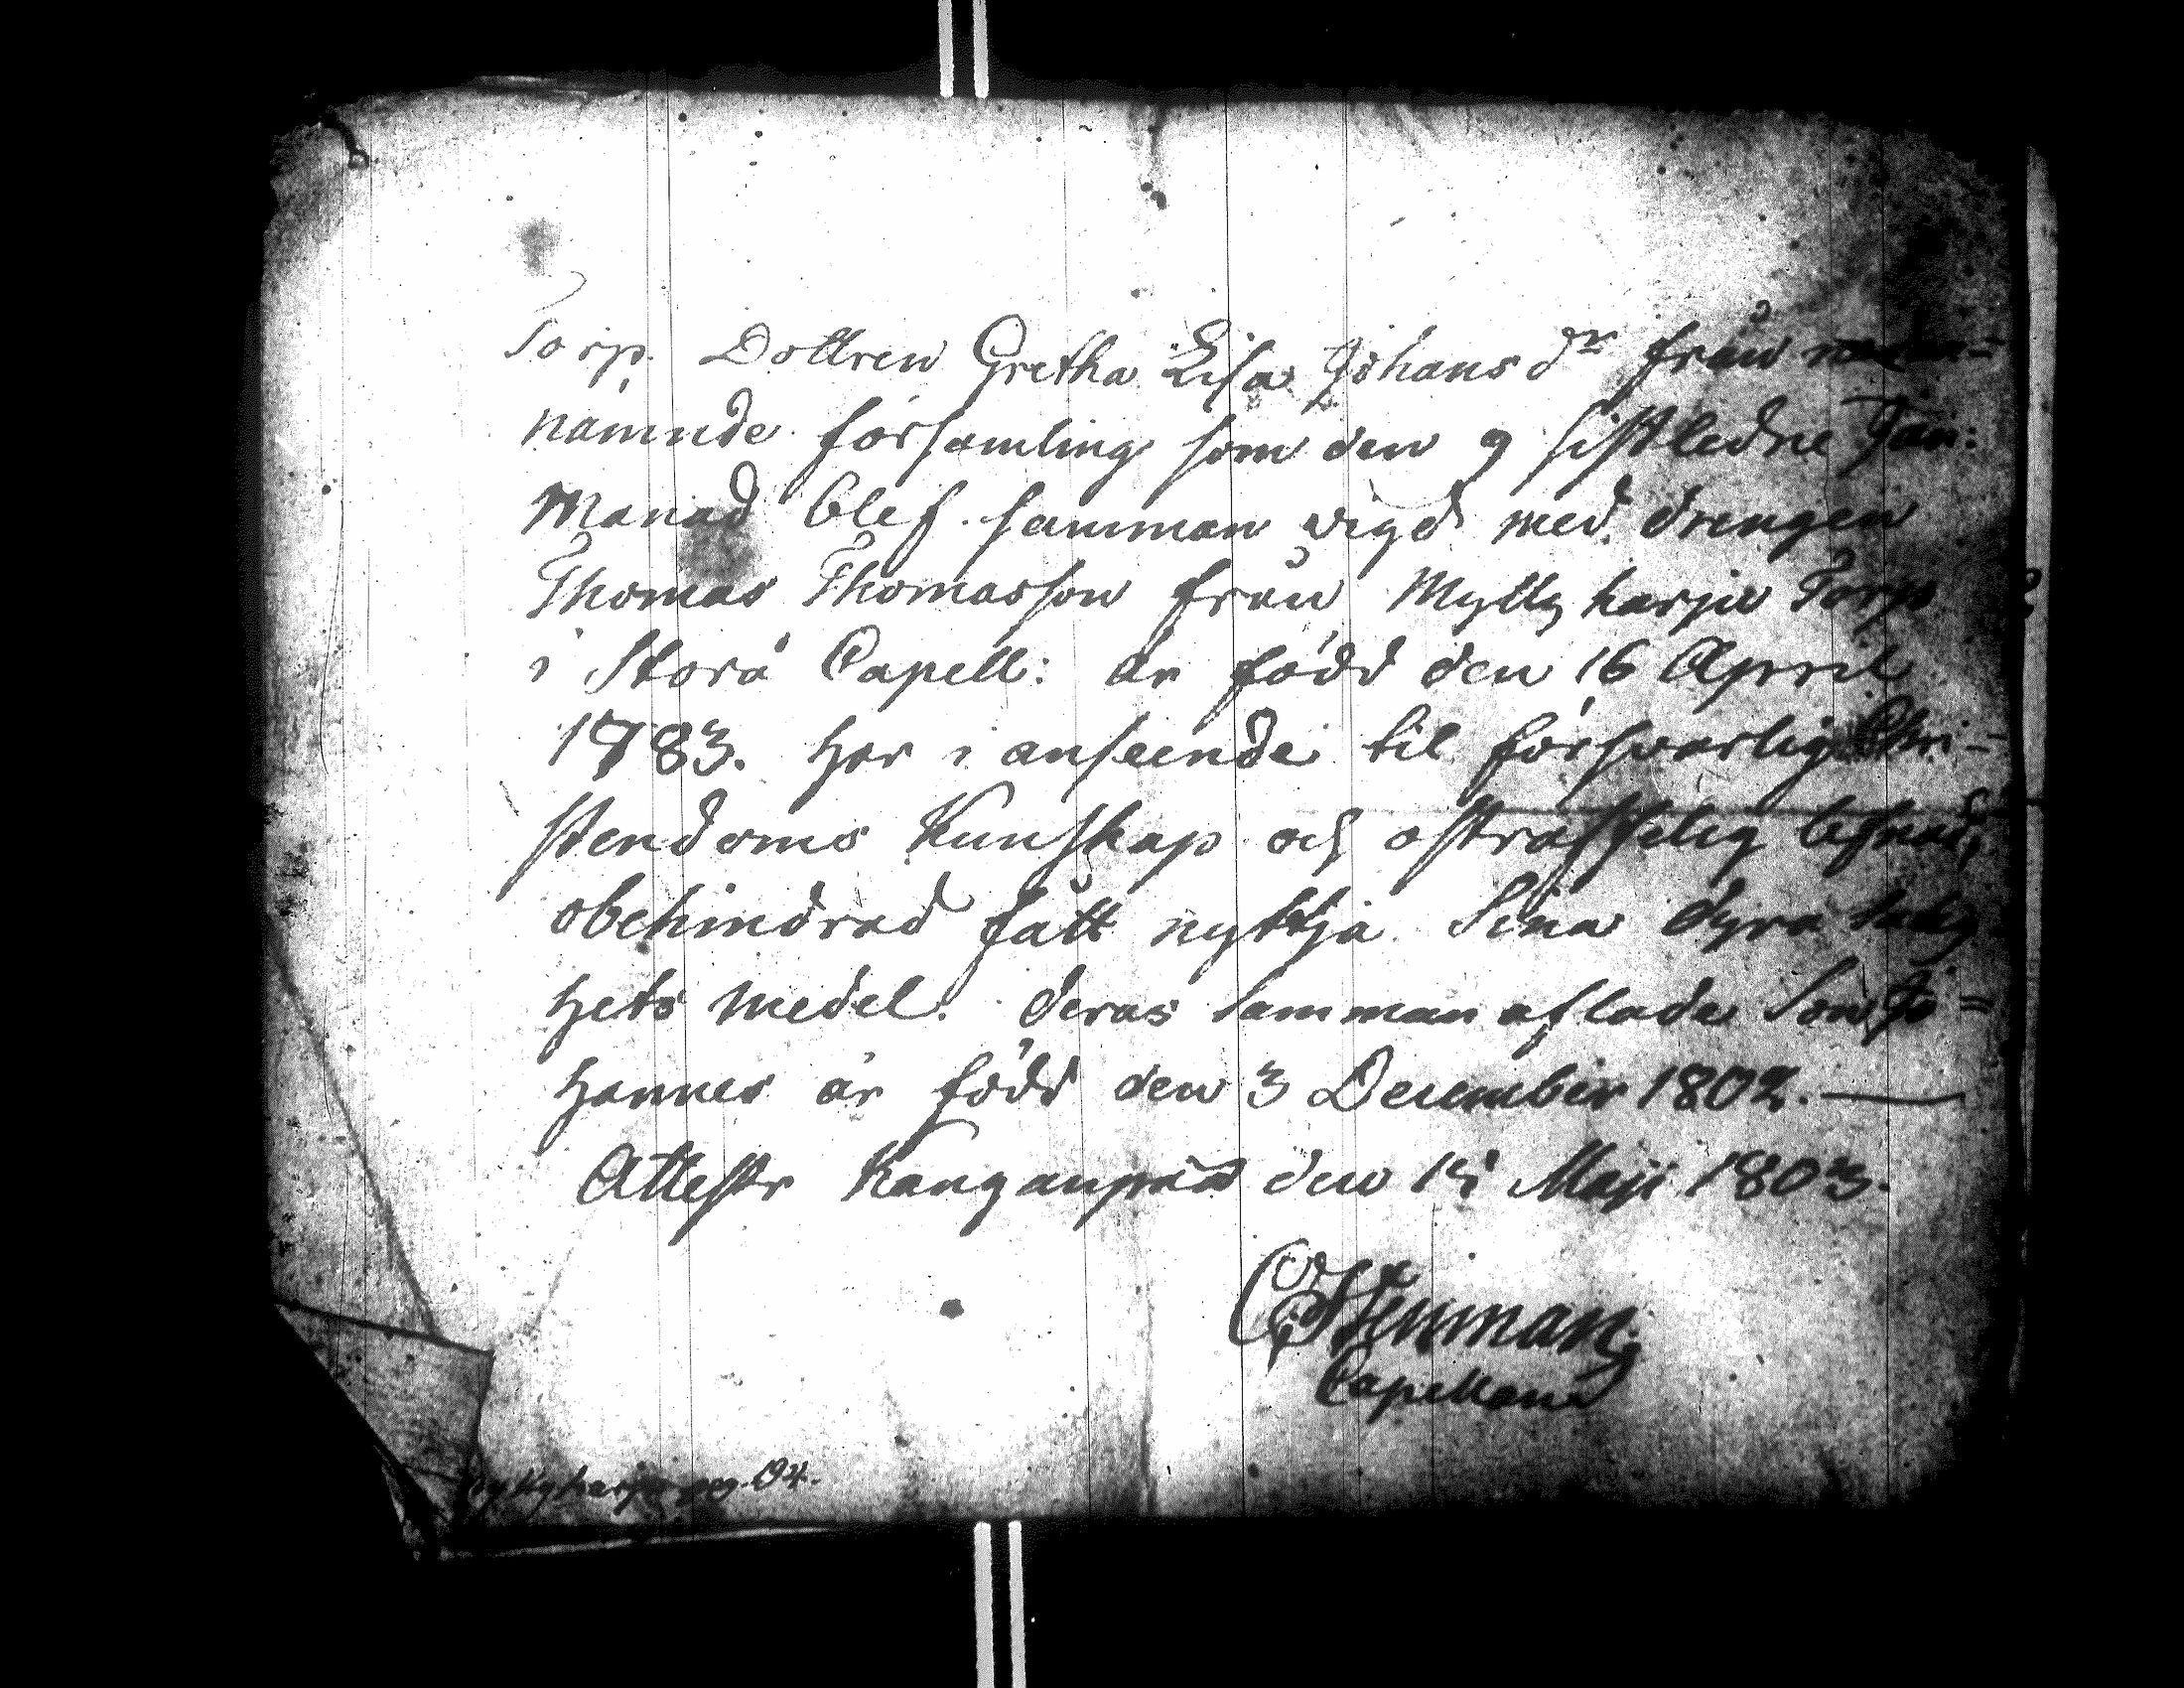 Torp. Dottren Gretha Lisa Johans dr från nedan-
nämnde församling som den 9 sistledne Jan:
Månad blef samman vigd med drengen
Thomas Thomasson från Myllyharju Torp
i Storå Capell: är född den 16 April
1783. har i anseende til försvarlig Chri-
stendoms Kunskap och ostraffelig lefnad,
obehindrad fått nyttja Sina dyra salig
hets medel. deras samman aflade Son Jo=
hannes är född den 3 December 1802.
Attestr Kanganpää den 14 Maji 1803.
CStenman
Capellan
pag. 194.